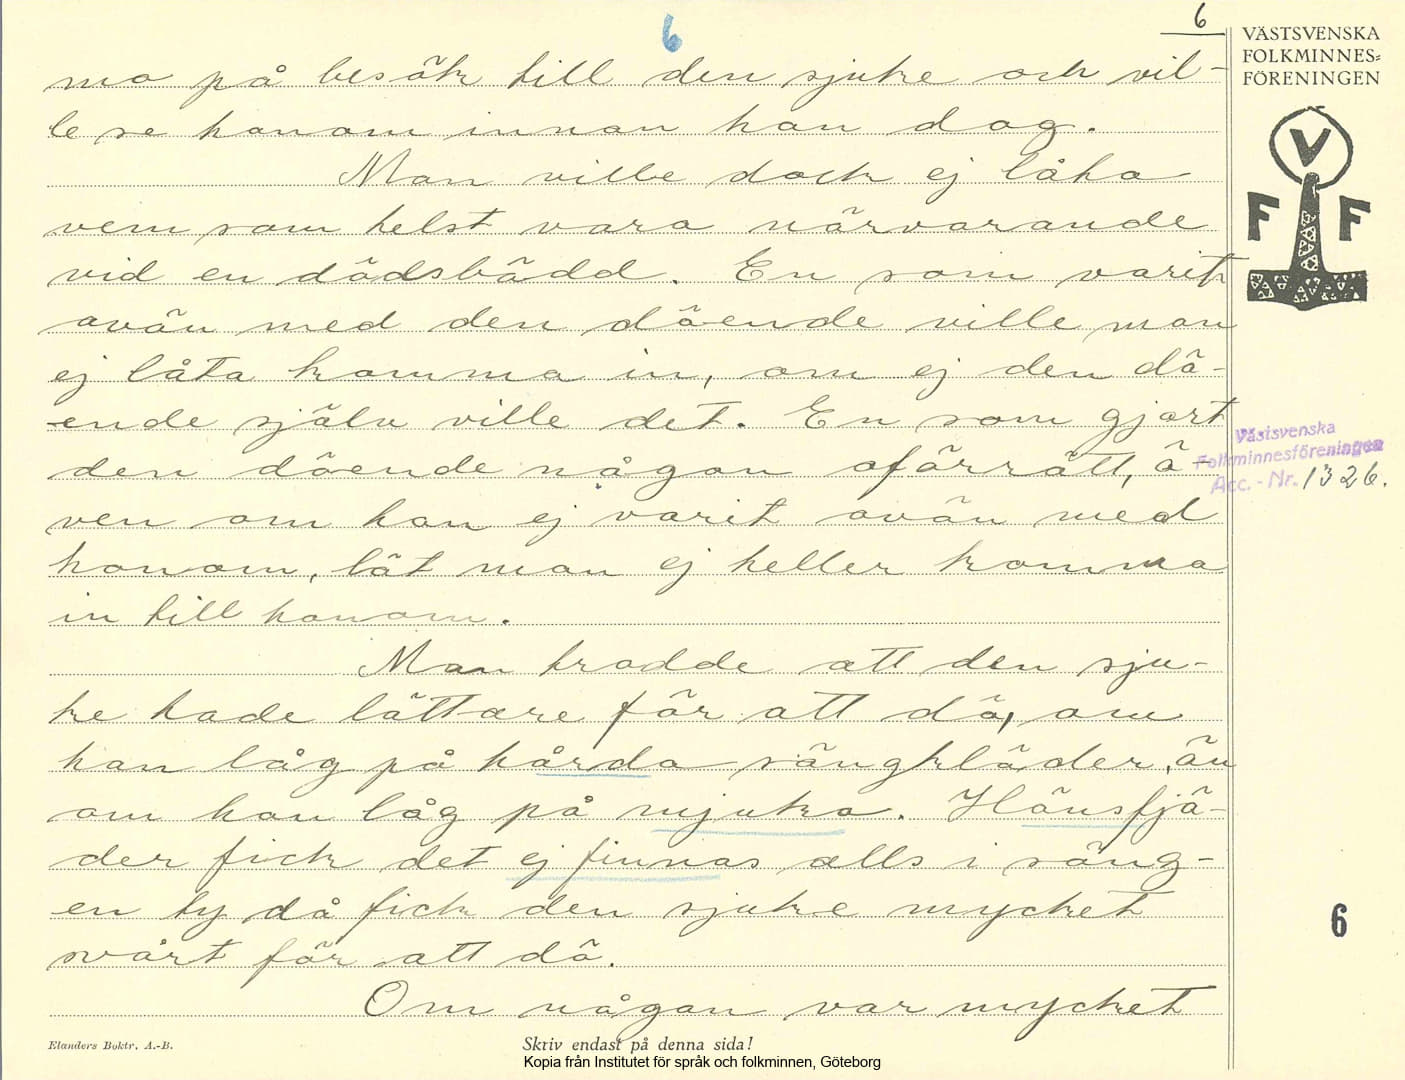 6
6
VÄSTSVENSKA
FOLKMINNES=
FÖRENINGEN
V
F F
ma på besök till den sjuke och vil-
le se honom innan han dog.
Man ville dock ej låta
vem som helst vara närvarande
vid en dödsbädd. En som varit
ovän med den döende ville man
ej låta komma in, om ej den dö-
ende själv ville det. En som gjort
den döende någon oförrätt, ä-
ven om han ej varit ovän med
honom, lät man ej heller komma
in till honom.
Västsvenska
Folkminnesföreningen
Acc. - Nr. 1326.
Man trodde att den sju-
ke hade lättare för att dö, om
han låg på hårda sängkläder, än
om han låg på mjuka. Hönsfjä-
der fick det ej finnas alls i säng-
en ty då fick den sjuke mycket
svårt för att dö.
Om någon var mycket
6
Elanders Boktr. A.-B.
Skriv endast på denna sida!
Kopia från Institutet för språk och folkminnen, Göteborg